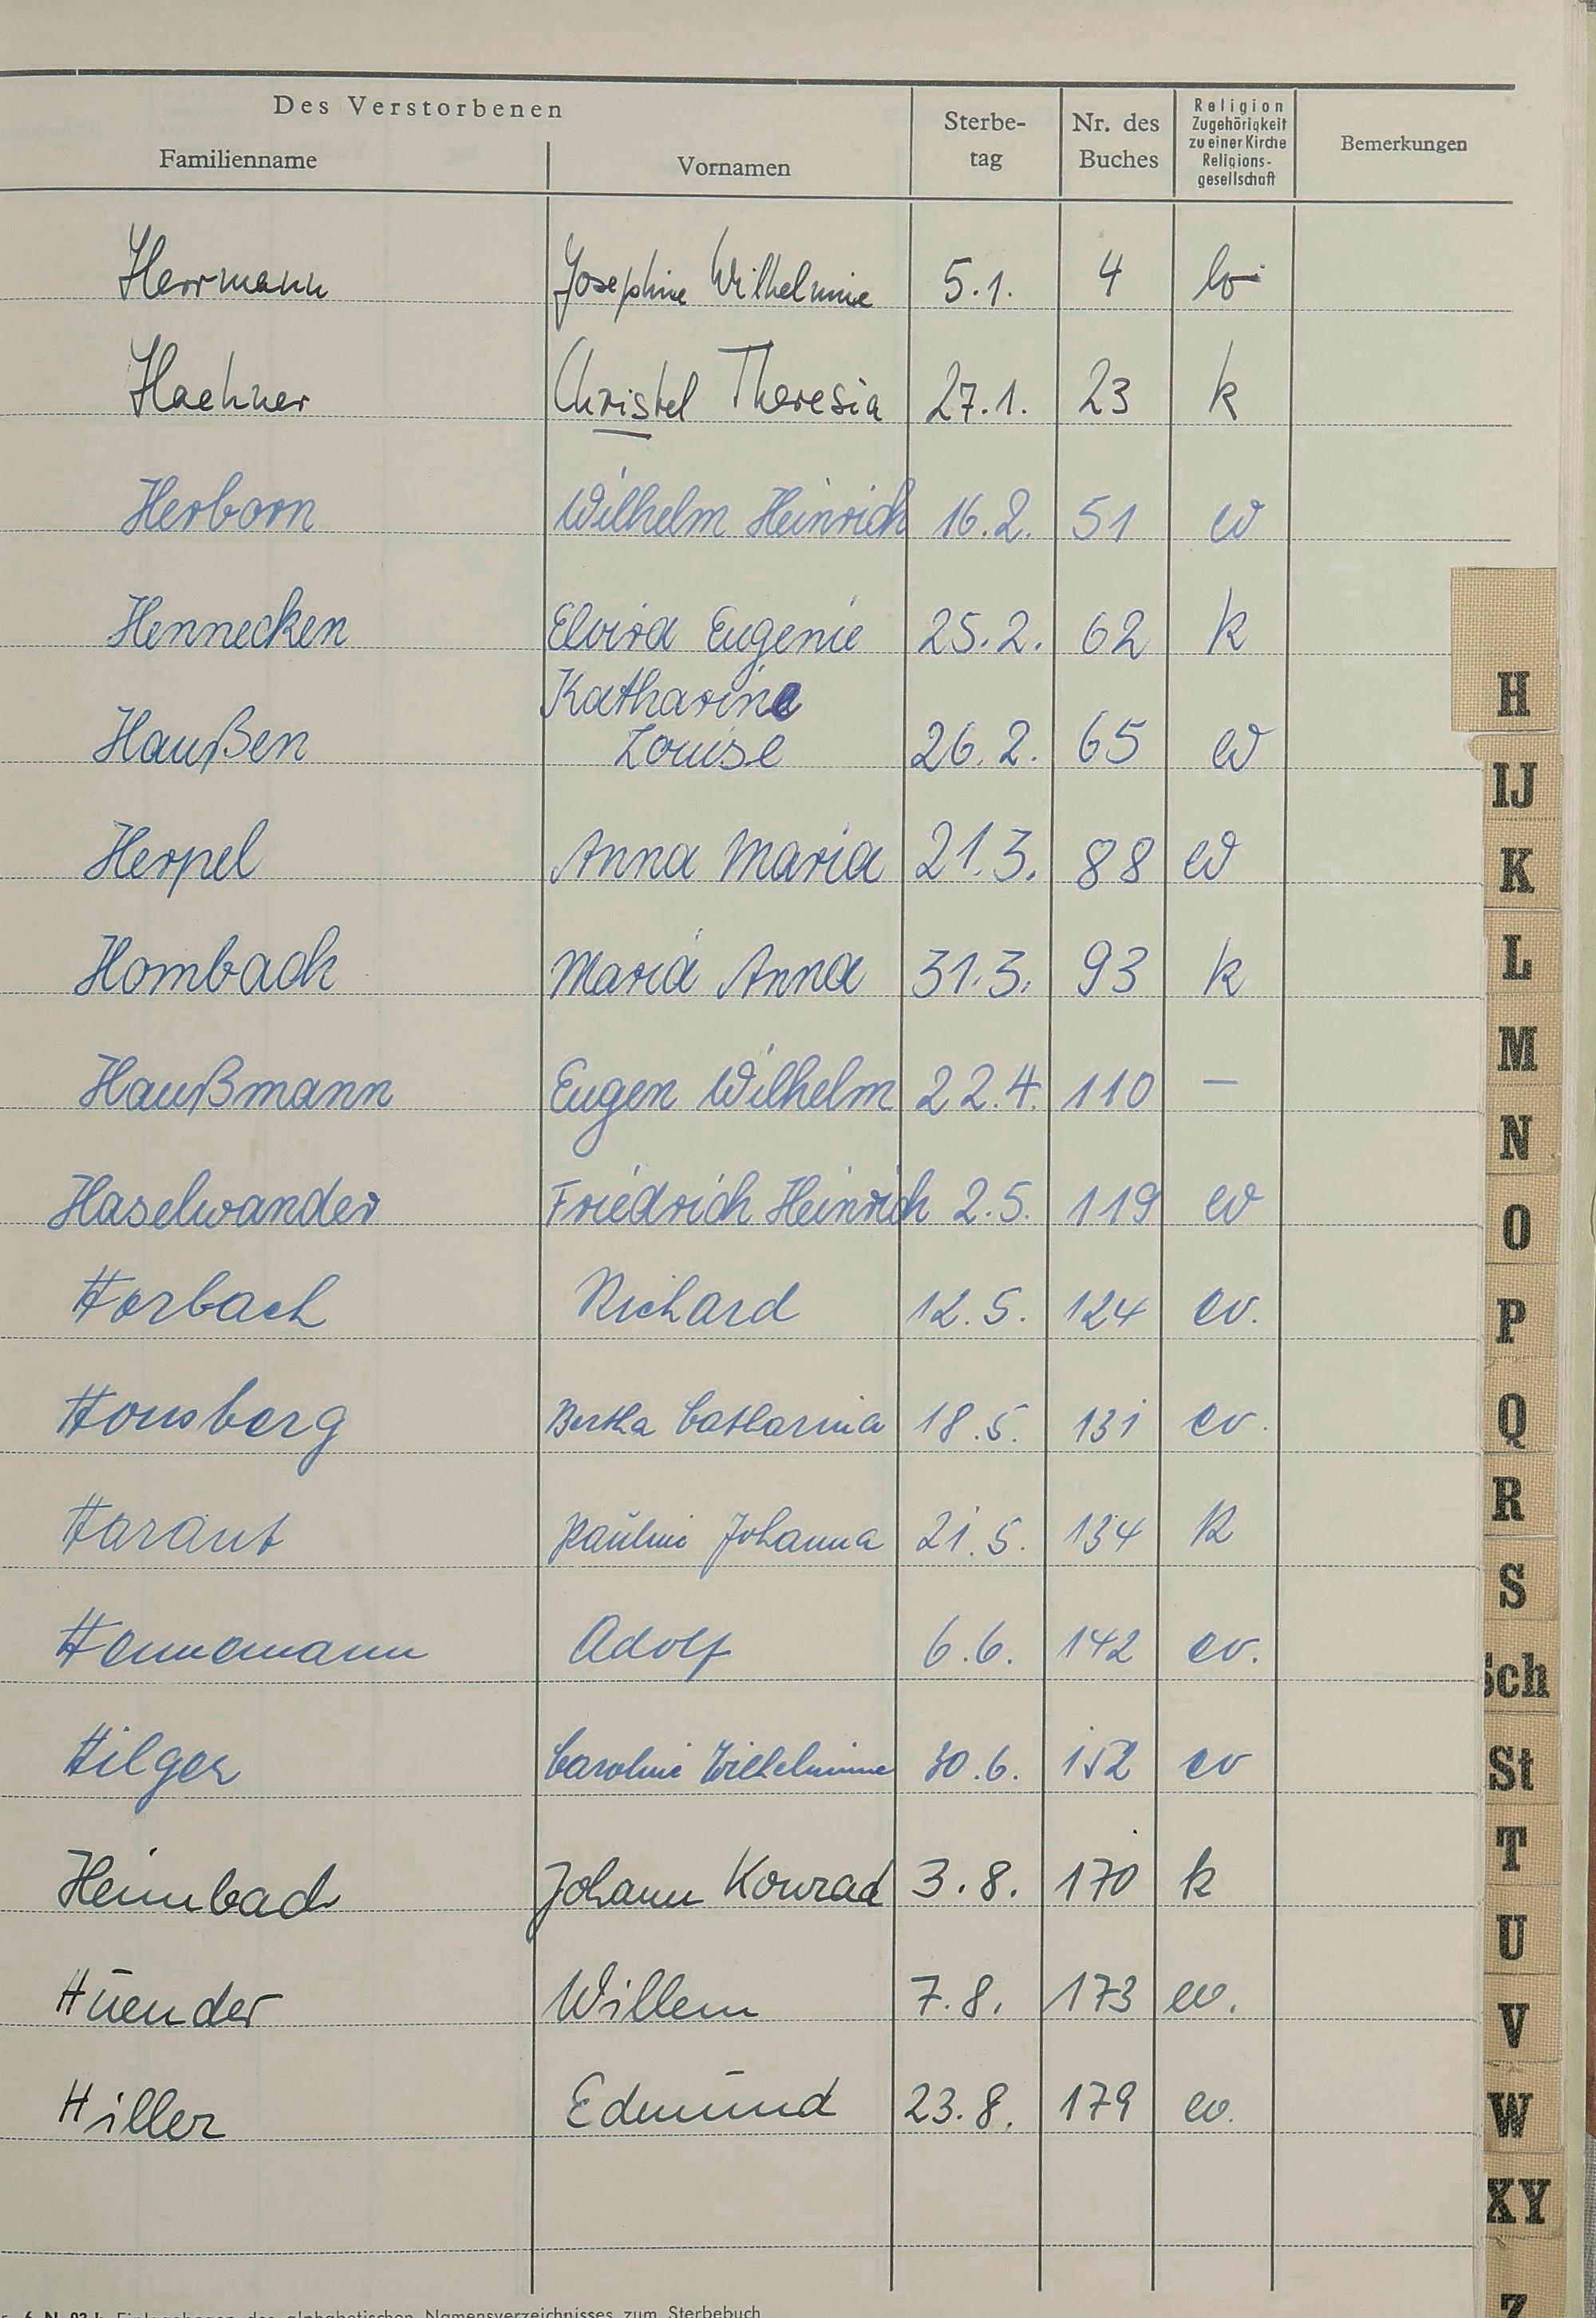 Des Verstorbenen
Familienname Vornamen Sterbe-tag Nr. des Buches Religion Zugehörigkeit zu einer Kirche Religions-gesellschaft Bemerkungen
Herrmann Josephine Wilhelmine 5.1. 4
Haehner Christel Theresia 27.1. 23 k
Herborn Wilhelm Heinrich 16.2. 51 ev
Hennecken Elvira Eugenie 25.2. 62 k
Katharina
Haußen Louise 26.2. 65 ev
Herpel Anna Maria 21.3. 88 ev
Hombach Maria Anna 31.3. 93 k
Haußmann Eugen Wilhelm 22.4. 110 –
Haselwander Friedrich Heinrich 2.5. 119 ev
Horbach Richard 12.5. 124 ev.
Honsberg Bertha Catharina 18.5. 131 ev.
Harant Pauline Johanna 21.5. 134 k
Hennemann Adolf 6.6. 142 ev.
Hilger Caroline Wilhelmine 30.6. 152 ev
Heimbach Johann Konrad 3.8. 170 k
Huender Willem 7.8. 173 ev.
Hiller Edmund 23.8. 179 ev.
Einlagebogen des alphabetischen Namensverzeichnisses zum Sterbebuch
H
IJ
K
L
M
N
O
P
Q
R
S
Sch
St
T
U
V
W
XY
Z